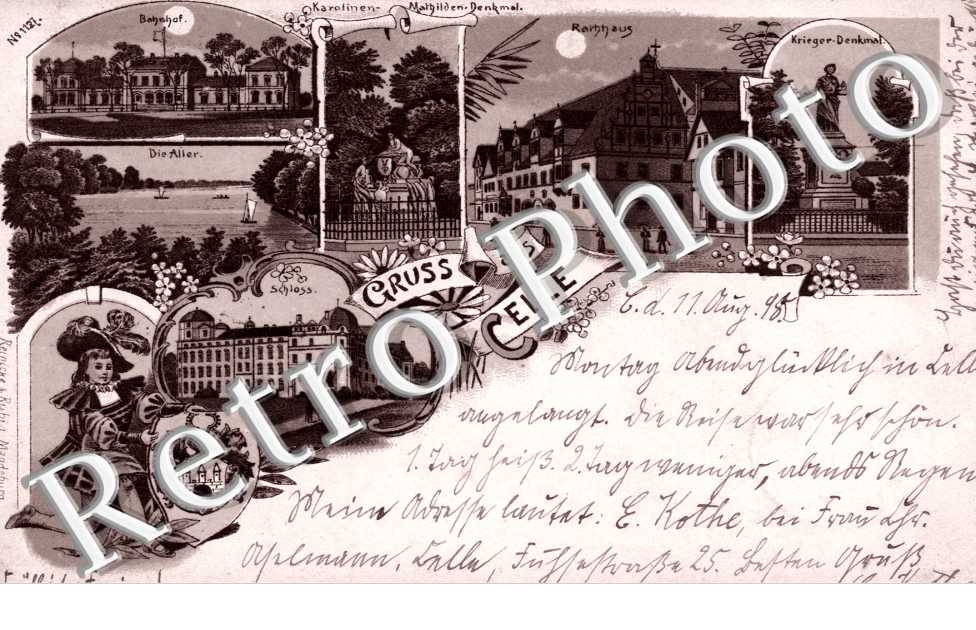 No 1121.
Bahnhof.
Karolinen- Mathilden-Denkmal.
Rathhaus
Krieger-Denkmal.
Die Aller.
Schloss.
GRUSS
AUS
CELLE
Retro Photo
C. d. 11 Aug. 98.
Montag Abend glücklich in Celle
angelangt. Die Reise war sehr schön.
1. Tag heiß. 2. Tag weniger, abends Regen
Meine Adresse lautet: E. Kothe, bei Frau Chr.
Aselmann, Celle, Fuhsestraße 25. Besten Gruß